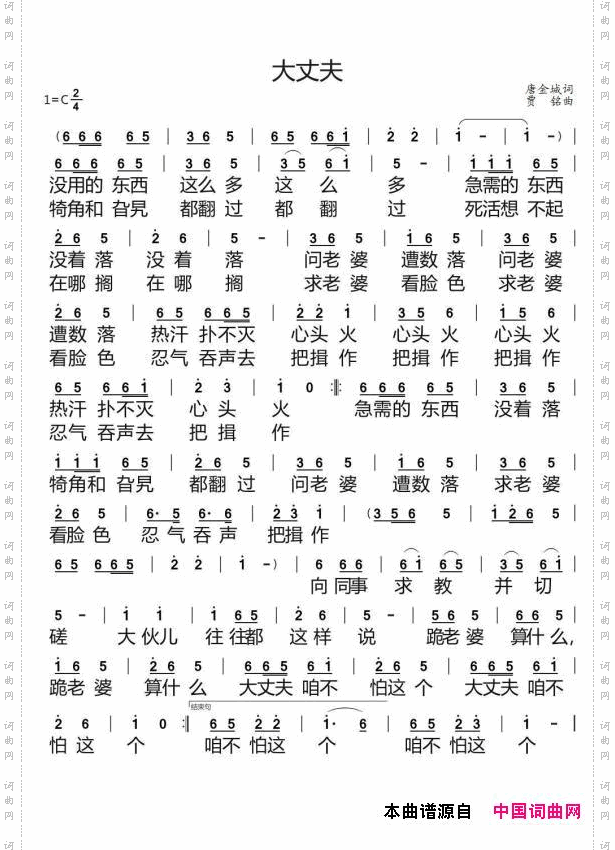 大丈夫
1=C 2/4
唐金城词
贾 铭曲
(6 6 6 6 5 | 3 6 5 | 6 5 6 6 i | 2 2 | i - | i - ) |
6 6 6 6 5 | 3 6 5 | 3 5 6 i | 5 - | i i i 6 5 |
没用的 东西 这么 多 这 么 多 急需的 东西
犄角和 旮旯 都翻 过 都 翻 过 死活想 不起
2 6 5 | 2 6 | 5 - | 3 6 5 | i 6 5 | 3 6 5 |
没着 落 没 着 落 问老 婆 遭数 落 问老 婆
在哪 搁 在 哪 搁 求老 婆 看脸 色 求老 婆
2 6 5 | 6 5 6 6 i | 2 2 i | 3 5 6 | i 5 6 |
遭数 落 热汗 扑不灭 心头 火 心头 火 心头 火
看脸 色 忍气 吞声去 把揖 作 把揖 作 把揖 作
6 5 6 6 i | 2 3 | i 0 :||: 6 6 6 6 5 | 3 6 5 |
热汗 扑不灭 心 头 火 急需的 东西 没着 落
忍气 吞声去 把 揖 作
i i i 6 5 | 2 6 5 | 3 6 5 | i 6 5 | 3 6 5 |
犄角和 旮旯 都翻 过 问老 婆 遭数 落 求老 婆
2 6 5 | 6· 5 6· 6 | 2 3 i | (3 5 6 6 | i 2 6 5 |
看脸 色 忍 气 吞 声 把揖 作
6 5 6 6 5 | 2 2 | i - ) | 6 3 6 | 6 i 6 5 | 3 5 6 i |
向 同事 求 教 并 切
5 - | i i | i 6 5 | 2 6 | 5 - | 5 6 5 | 6 6 5 |
磋 大 伙儿 往 往都 这 样 说 跪老 婆 算什 么,
i 6 5 | 2 6 5 | 6 6 5 6 i | 2 6 5 | 6 6 5 6 i |
跪老 婆 算什 么 大丈夫 咱不 怕这 个 大丈夫 咱不
结束句
2 6 | i 0 :|| 6 5 2 2 | i· 6 | 6 5 2 3 | i - |
怕 这 个 咱不 怕这 个 咱不 怕这 个
本曲谱源自 中国词曲网